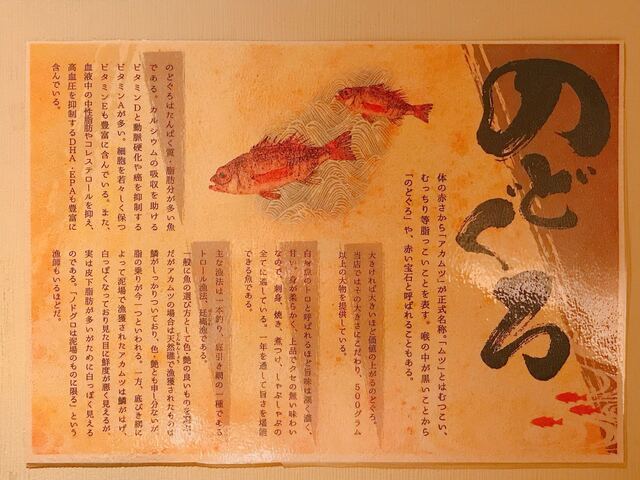 のどぐろ
体の赤さから「アカムツ」が正式名称「ムツ」とはむつこい、
むっちり等脂っこいことを表す。喉の中が黒いことから
「のどぐろ」や、赤い宝石と呼ばれることもある。
大きければ大きいほど価値の上がるのどぐろ。
当店ではその大きさにこだわり、500グラム
以上の大物を提供している。
白身魚のトロと呼ばれるほど旨味は濃く濃く、
甘い。身が柔らかく、上品でクセの無い味わい
なので、刺身、焼き、煮つけ、しゃぶしゃぶの
全てに適している。一年を通して旨さを堪能
できる魚である。
主な漁法は一本釣り、底引き網の一種である
トロール漁法、延縄漁である。
一般に魚の選び方として色・艶の良いものを選ぶ
だがアカムツの場合は天然礁で漁獲されたものは
鱗がしっかりついており、色・艶とも申し分ないが
脂の乗りが今一つといわれる。一方、底びき網に
よって泥場で漁獲されたアカムツは鱗がはげ、
白っぽくなっており見た目に鮮度が悪く見えるが
実は皮下脂肪が多いがために白っぽく見える
のである。「ノドグロは泥場のものに限る」という
漁師もいるほどだ。
のどぐろはたんぱく質・脂肪分が多い魚
である。カルシウムの吸収を助ける
ビタミンDと動脈硬化や癌を抑制する
ビタミンAが多い。細胞を若々しく保つ
ビタミンEも豊富に含んでいる。また、
血液中の中性脂肪やコレステロールを抑え、
高血圧を抑制するDHA・EPAも豊富に
含んでいる。